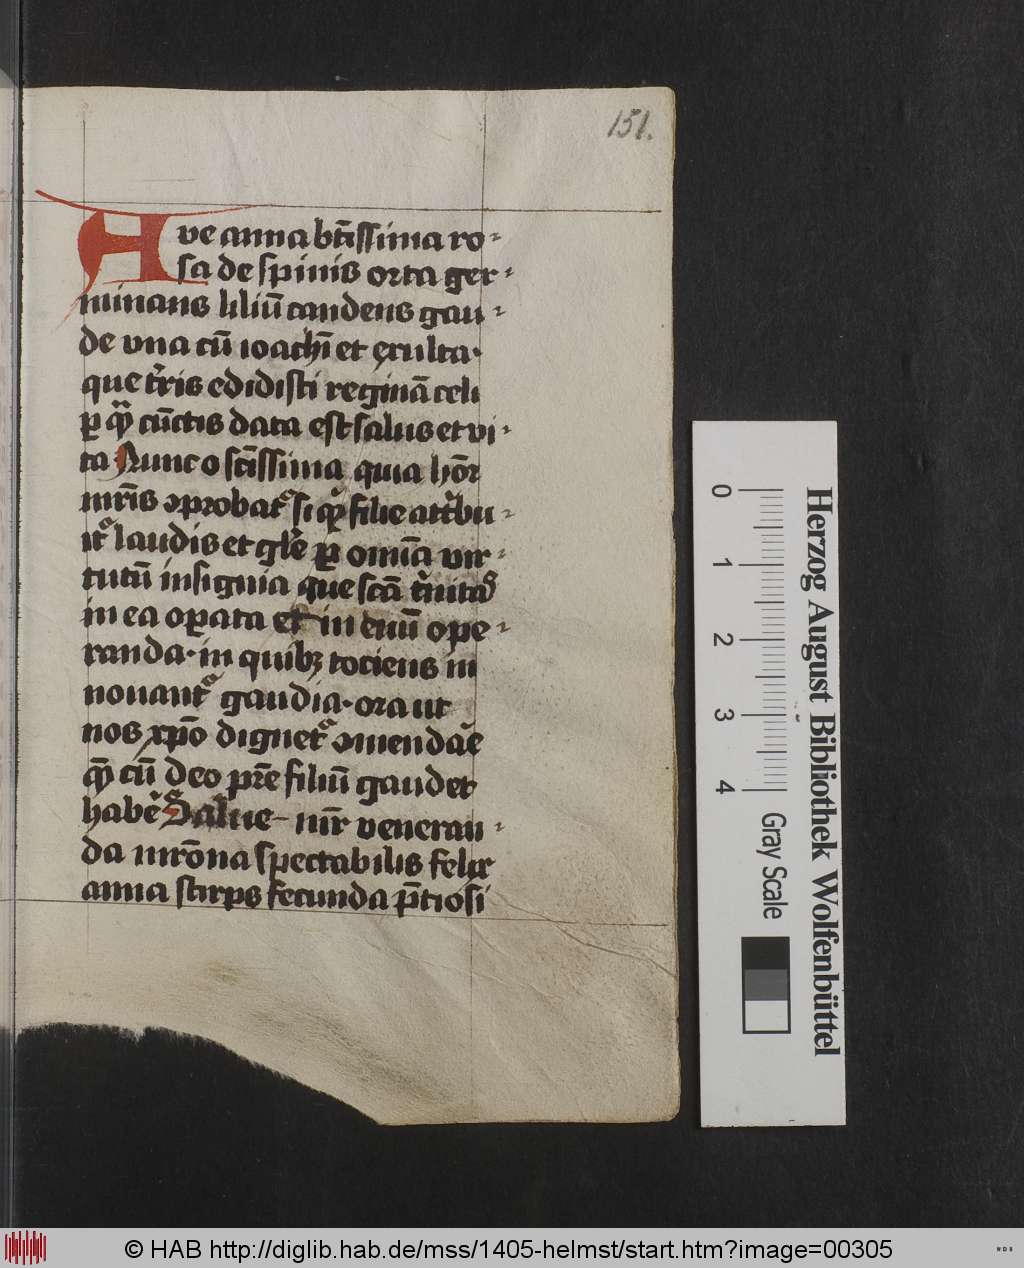 151.
Ave anna bt̄issima ro⸗
sa de spinis orta ger⸗
minans liliū candens gau⸗
de vna cū ioachī et exulta·
que t̄ris edidisti reginā celi
ꝑ quā cūctis data est salus et vi⸗
ta Nunc o sc̄issima quia honor
mr̄is ꝯprobat᷑ si filie att̉bu⸗
it᷑ laudis et gl̄e ꝑ omīa vir⸗
tutū insignia que scā t̉nitas
in ea oꝑata et in euū ope⸗
randa· in quibꝫ tociens in
nouant᷑ gaudia· ora ut
nos xp̄o dignet᷑ ꝯmendāe
qm̄ cū deo pr̄e filiū gaudet
habē Salue mr̄ veneran⸗
da mr̄ona spectabilis felix
anna stirps fecunda p̄tiosi
0 1 2 3 4
Gray Scale
Herzog August Bibliothek Wolfenbüttel
© HAB http://diglib.hab.de/mss/1405-helmst/start.htm?image=00305